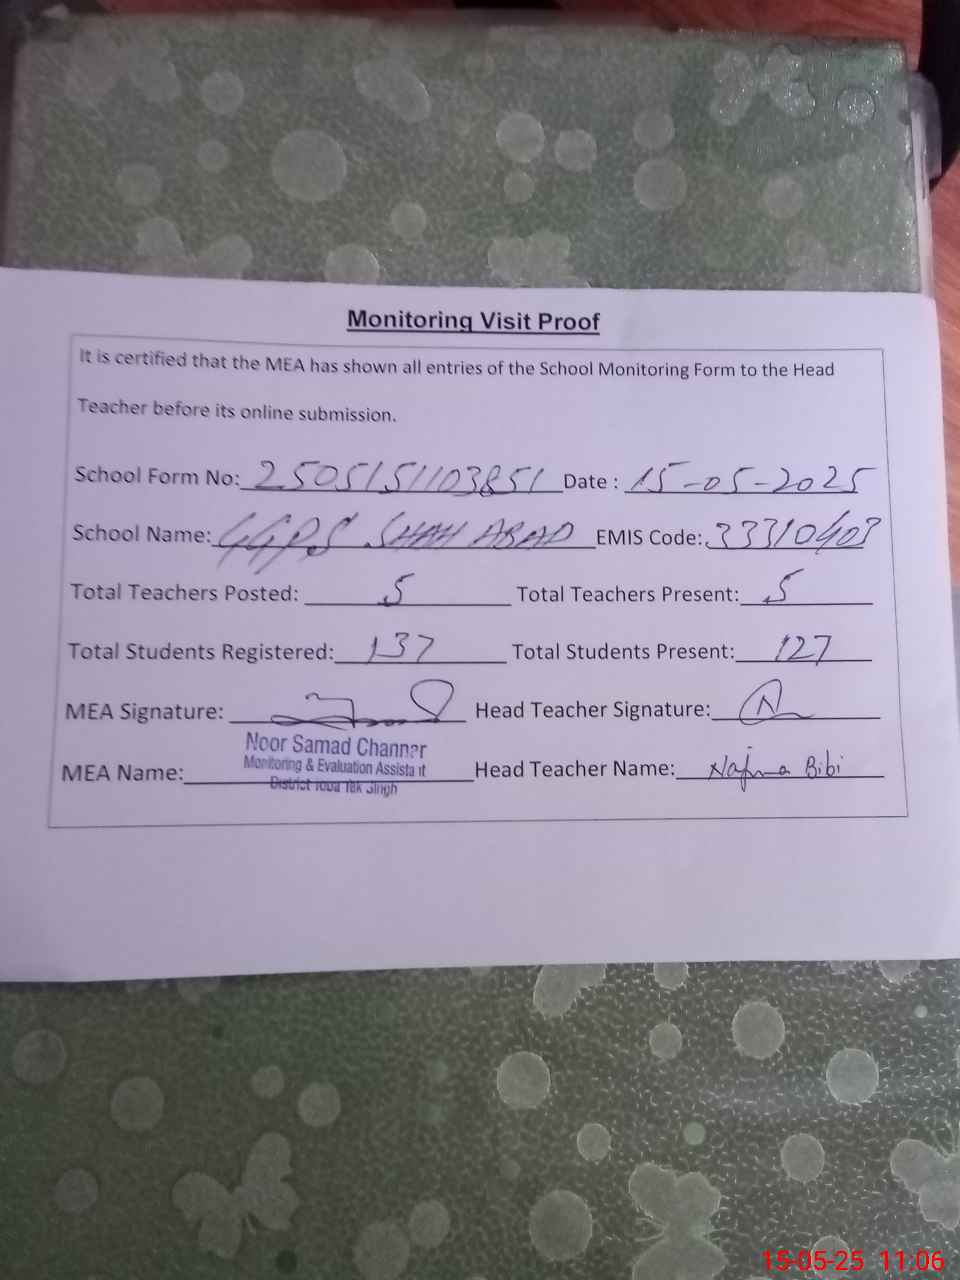 Monitoring Visit Proof
It is certified that the MEA has shown all entries of the School Monitoring Form to the Head
Teacher before its online submission.
School Form No: 2505151103851 Date : 15-05-2025
School Name: GGPS SHAH ABAD EMIS Code: 33310403
Total Teachers Posted: 5 Total Teachers Present: 5
Total Students Registered: 137 Total Students Present: 127
MEA Signature: Head Teacher Signature:
Noor Samad Channer
Monitoring & Evaluation Assistant
MEA Name: Head Teacher Name: Najma Bibi
District Toba Tek Singh
15-05-25 11:06